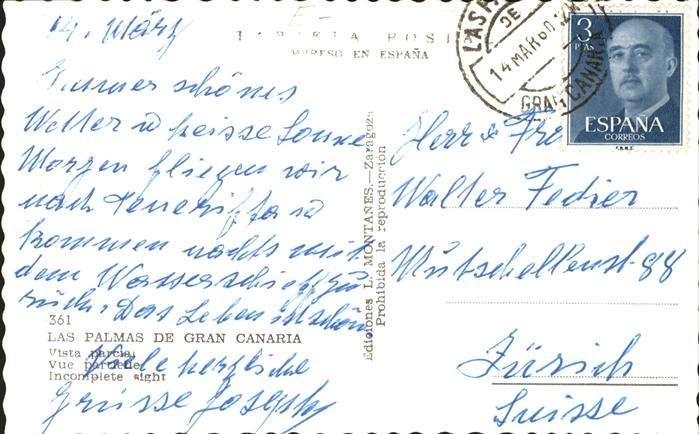 14. März
TARJETA POSTAL
IMPRESO EN ESPAÑA
Immer schönes
Wetter u heisse Sonne
Morgen fliegen wir
nach Teneriffa u
kommen nachts mit
dem Wasserschiff zu
rück. Das Leben ist schön
361
LAS PALMAS DE GRAN CANARIA
Vista parcial
Vue partielle
Incomplete sight
Viele herzliche
Grüsse Joseph
Ediciones L. MONTAÑES.—Zaragoza
Prohibida la reproducción
LAS
DE
14 MAR 60
GRAN CANARIA
3
PTAS
ESPAÑA
CORREOS
Herr &
Walter Fedier
Mutschellenst. 98
Zürich
Suisse